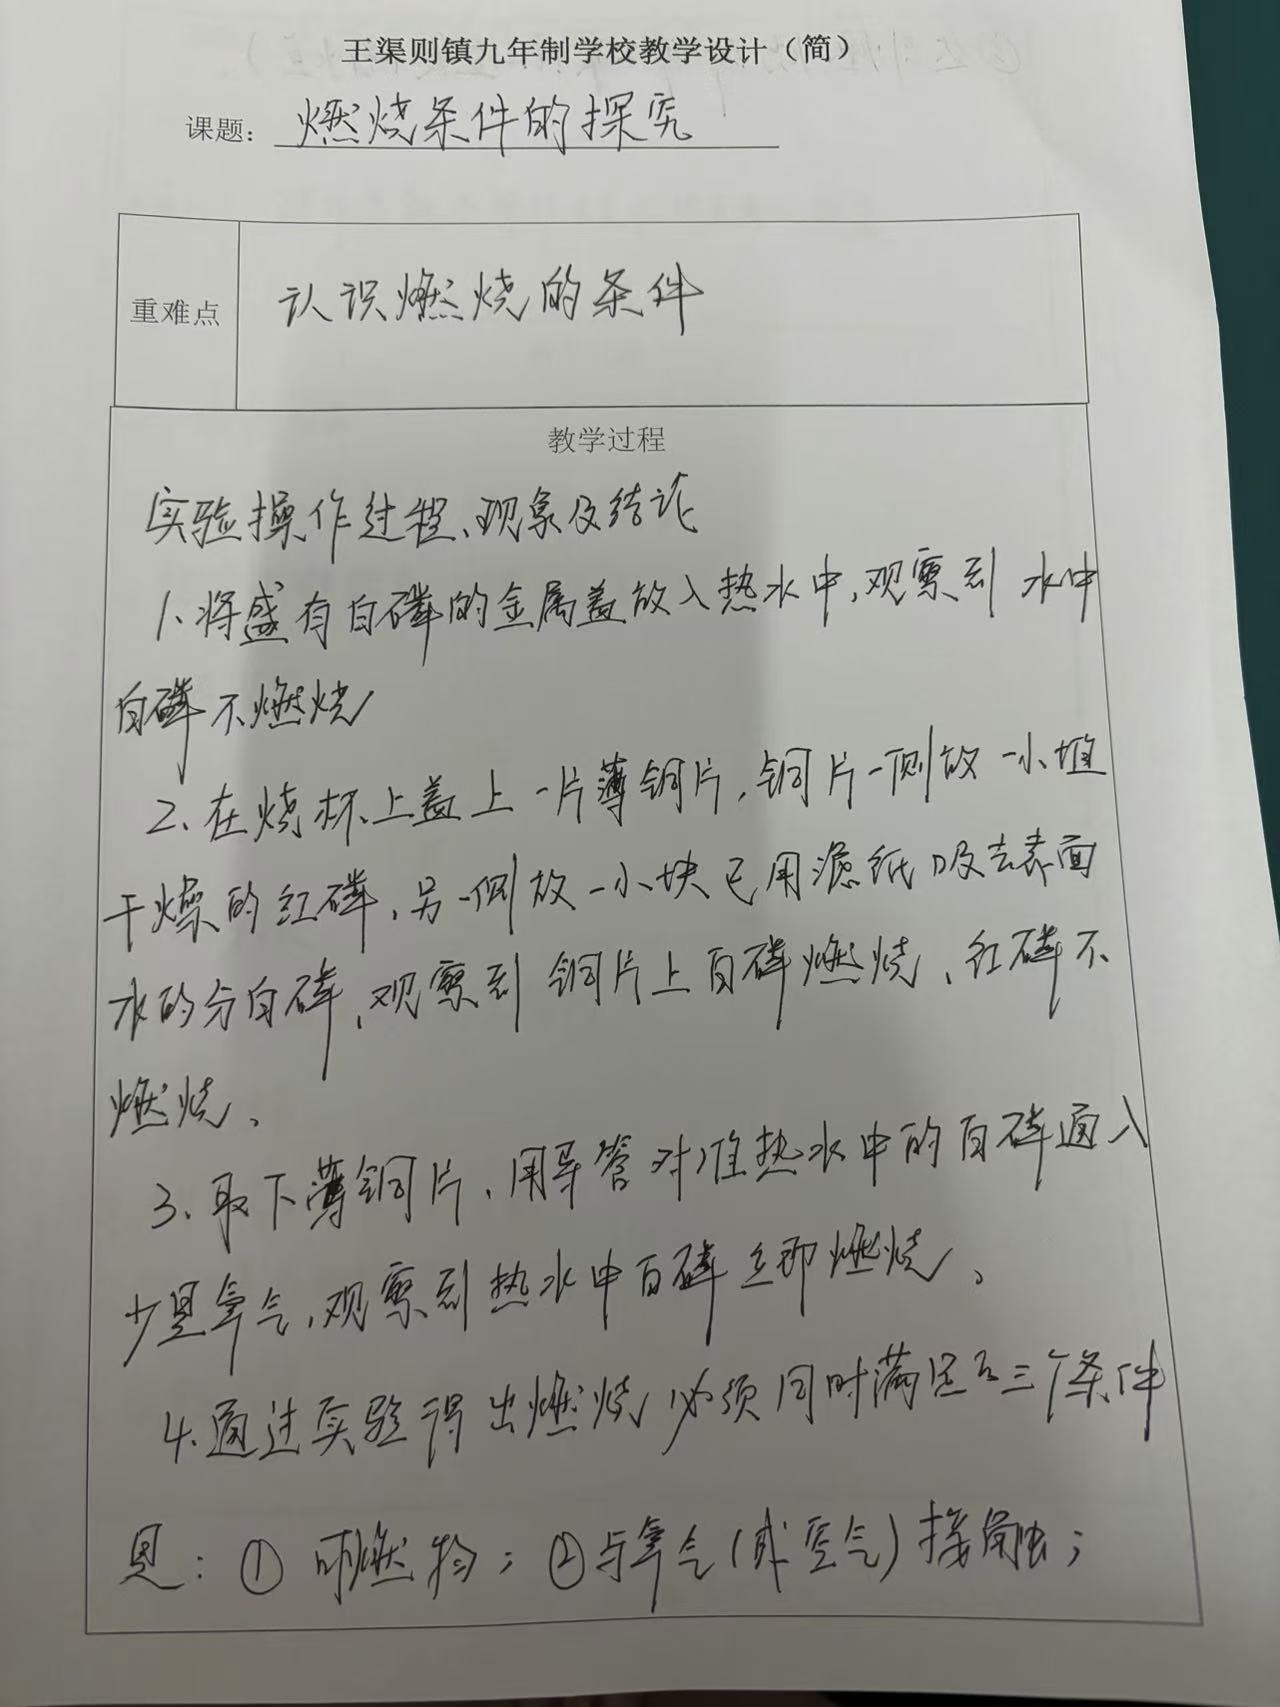 王渠则镇九年制学校教学设计（简）
课题：燃烧条件的探究
重难点
认识燃烧的条件
教学过程
实验操作过程、现象及结论
1、将盛有白磷的金属盖放入热水中，观察到 水中
白磷不燃烧
2、在烧杯上盖上一片薄铜片，铜片一侧放一小堆
干燥的红磷，另一侧放一小块已用滤纸吸去表面
水的分白磷，观察到 铜片上白磷燃烧、红磷不
燃烧、
3、取下薄铜片、用导管对准热水中的白磷通入
少量氧气，观察到热水中白磷立即燃烧、
4、通过实验得出燃烧必须同时满足三个条件
：① 可燃物；②与氧气（或空气）接触；